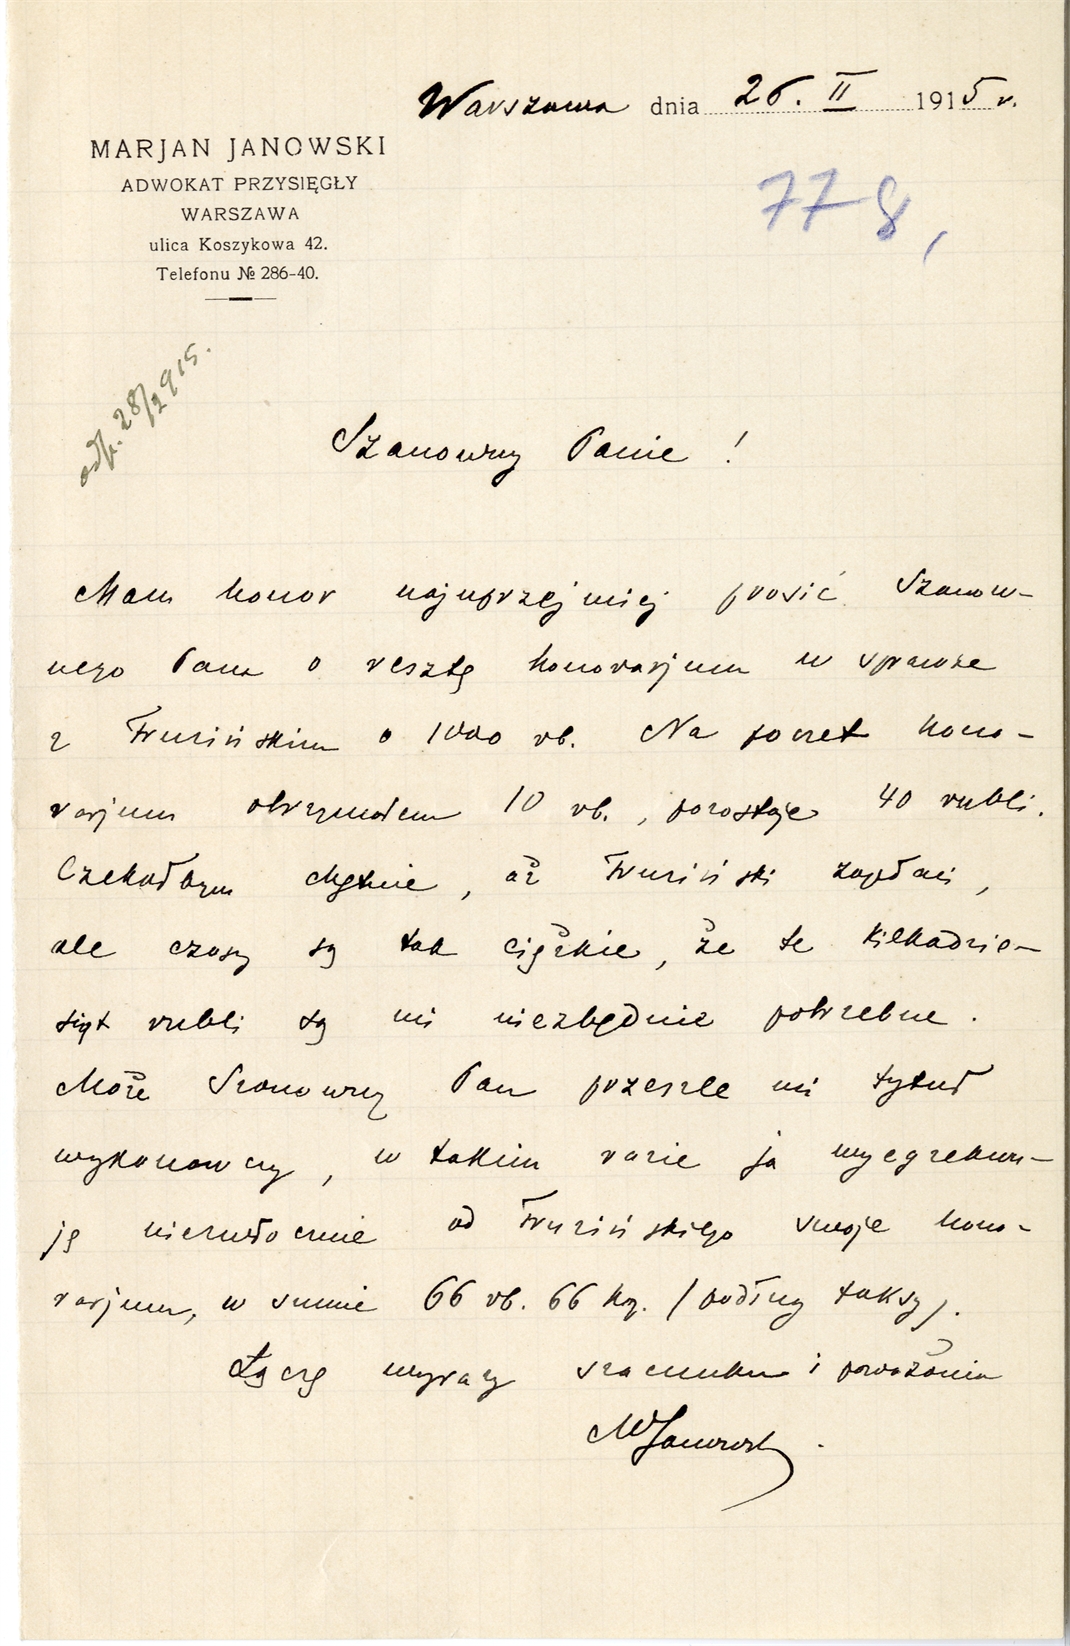 Warszawa dnia 26. II 1915 r.
MARJAN JANOWSKI
ADWOKAT PRZYSIĘGŁY
WARSZAWA
ulica Koszykowa 42.
Telefonu № 286-40.
778,
odp. 28/2 915.
Szanowny Panie !
Mam honor najuprzejmiej prosić Szanow-
nego Pana o resztę honorarjum w sprawie
z Fruzińskim o 1000 rb. Na poczet hono-
rarjum otrzymałem 10 rb., pozostaje 40 rubli.
Czekałbym chętnie, aż Fruziński zapłaci,
ale czasy są tak ciężkie, że te kilkadzie-
siąt rubli są mi niezbędnie potrzebne.
Może Szanowny Pan przeszle mi tytuł
wykonawczy, w takim razie ja wyegzekwu-
ję niezwłocznie od Fruzińskiego swoje hono-
rarjum, w sumie 66 rb. 66 kop. / podług taksy /.
Łączę wyrazy szacunku i poważania
MJanowski.